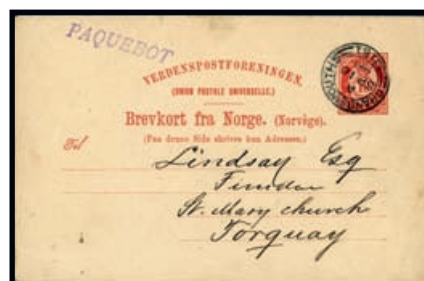 PAQUEBOT
VERDENSPOSTFORENINGEN.
(UNION POSTALE UNIVERSELLE.)
Brevkort fra Norge. (Norvège).
(Paa denne Side skrives kun Adressen.)
Til
Lindsay Esq
St. Mary church
Torquay